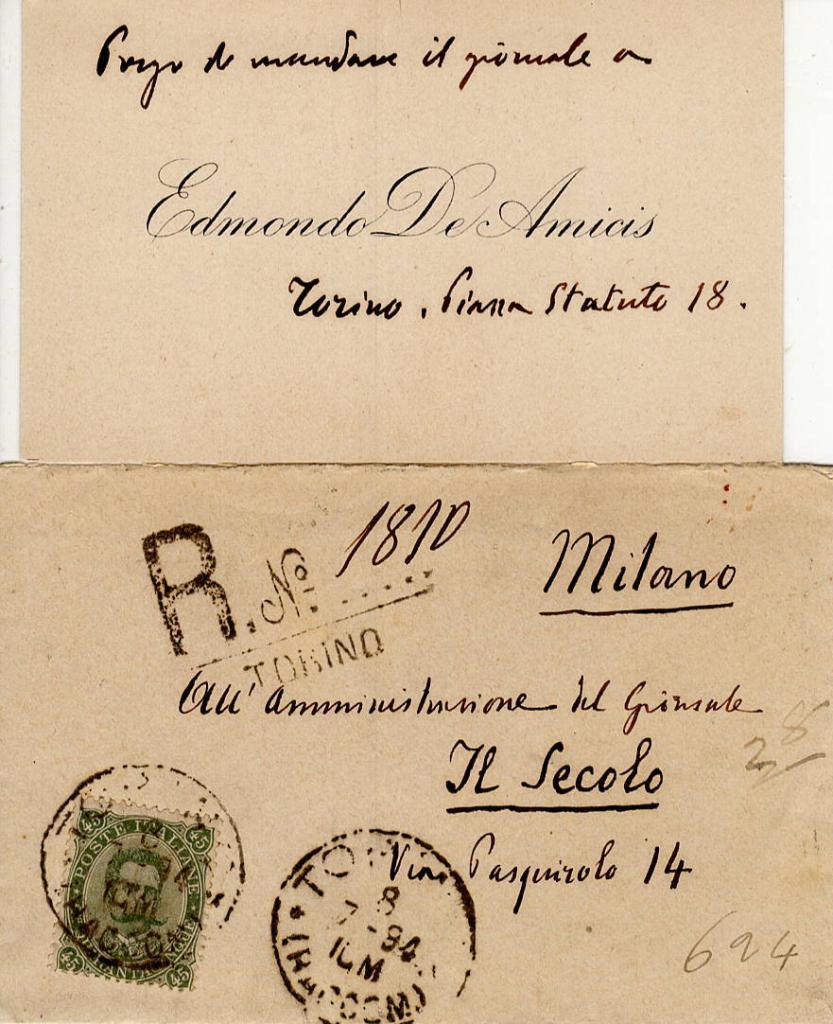 Prego di mandare il giornale a
Edmondo De Amicis
Torino. Piazza Statuto 18.
R. No. 1810
TORINO
Milano
All'Amministrazione del Giornale
Il Secolo
Via Pasquirolo 14
28
45 POSTE ITALIANE 45
45 45
TO
8
7 - 94
10 M
(RACCOM)
694